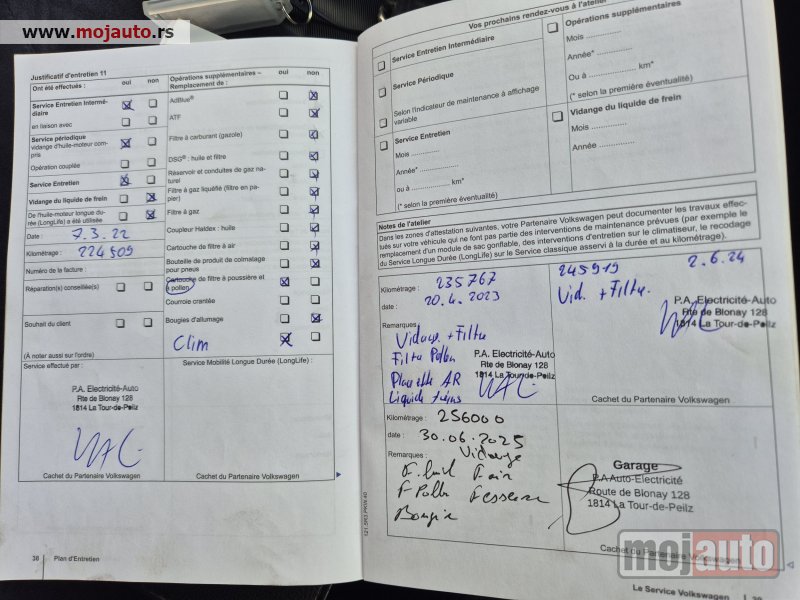 www.mojauto.rs
Justificatif d'entretien 11
Ont été effectués : oui non
Service Entretien Intermédiaire
en liaison avec
Service périodique
vidange d'huile-moteur compris
Opération couplée
Service Entretien
Vidange du liquide de frein
De l'huile-moteur longue durée (LongLife) a été utilisée
Date : 7.3.22
Kilométrage : 224509
Numéro de la facture :
Réparation(s) conseillée(s)
Souhait du client
(À noter aussi sur l'ordre)
Service effectué par :
P.A. Electricité-Auto
Rte de Blonay 128
1814 La Tour-de-Peilz
Cachet du Partenaire Volkswagen
Opérations supplémentaires –
Remplacement de : oui non
AdBlue®
ATF
Filtre à carburant (gazole)
DSG® : huile et filtre
Réservoir et conduites de gaz naturel
Filtre à gaz liquéfié (filtre en papier)
Filtre à gaz
Coupleur Haldex : huile
Cartouche de filtre à air
Bouteille de produit de colmatage pour pneus
Cartouche de filtre à poussière et à pollen
Courroie crantée
Bougies d'allumage
Clim
Service Mobilité Longue Durée (LongLife) :
Cachet du Partenaire Volkswagen
38 Plan d'Entretien
Vos prochains rendez-vous à l'atelier
Service Entretien Intermédiaire
Service Périodique
Selon l'indicateur de maintenance à affichage variable
Service Entretien
Mois
Année*
ou à km*
(* selon la première éventualité)
Opérations supplémentaires
Mois
Année*
Ou à km*
(* selon la première éventualité)
Vidange du liquide de frein
Mois
Année
Notes de l'atelier
Dans les zones d'attestation suivantes, votre Partenaire Volkswagen peut documenter les travaux effectués sur votre véhicule qui ne font pas partie des interventions de maintenance prévues (par exemple le remplacement d'un module de sac gonflable, des interventions d'entretien sur le climatiseur, le recodage du Service Longue Durée (LongLife) sur le Service classique asservi à la durée et au kilométrage).
Kilométrage : 235767
date : 20.4.2023
Remarques :
Filtre Pollen
Plaquette AR
P.A. Electricité-Auto
Rte de Blonay 128
1814 La Tour-de-Peilz
245919 2.6.24
Vid. + Filtre.
P.A. Electricité-Auto
Rte de Blonay 128
1814 La Tour-de-Peilz
Cachet du Partenaire Volkswagen
Kilométrage : 256000
date : 30.06.2025
Remarques : Vidange
Garage
P.A Auto-Electricité
Route de Blonay 128
1814 La Tour-de-Peilz
Cachet du Partenaire Volkswagen
mojauto
Le Service Volkswagen 39